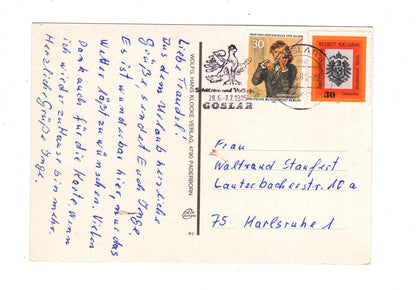 Liebe Traudel!
Aus dem Urlaub herzliche
Grüße, sendet Euch Inge
Es ist wunderbar hier, nur das
Wetter läßt zu wünschen. Vielen
Dank auch für die Karte. Wenn
ich wieder zu Hause bin mehr.
Herzliche Grüße Inge.
WOLFG. HANS KLOCKE VERLAG, 4790 PADERBORN
30
DEUTSCHE BUNDESPOST BERLIN
30
Deutsche
Schützen- und Volksfest
28.6.-7.7.
GOSLAR
Frau
Waltraud Staufert
Lauterbacherstr. 10 a
75 Karlsruhe 1